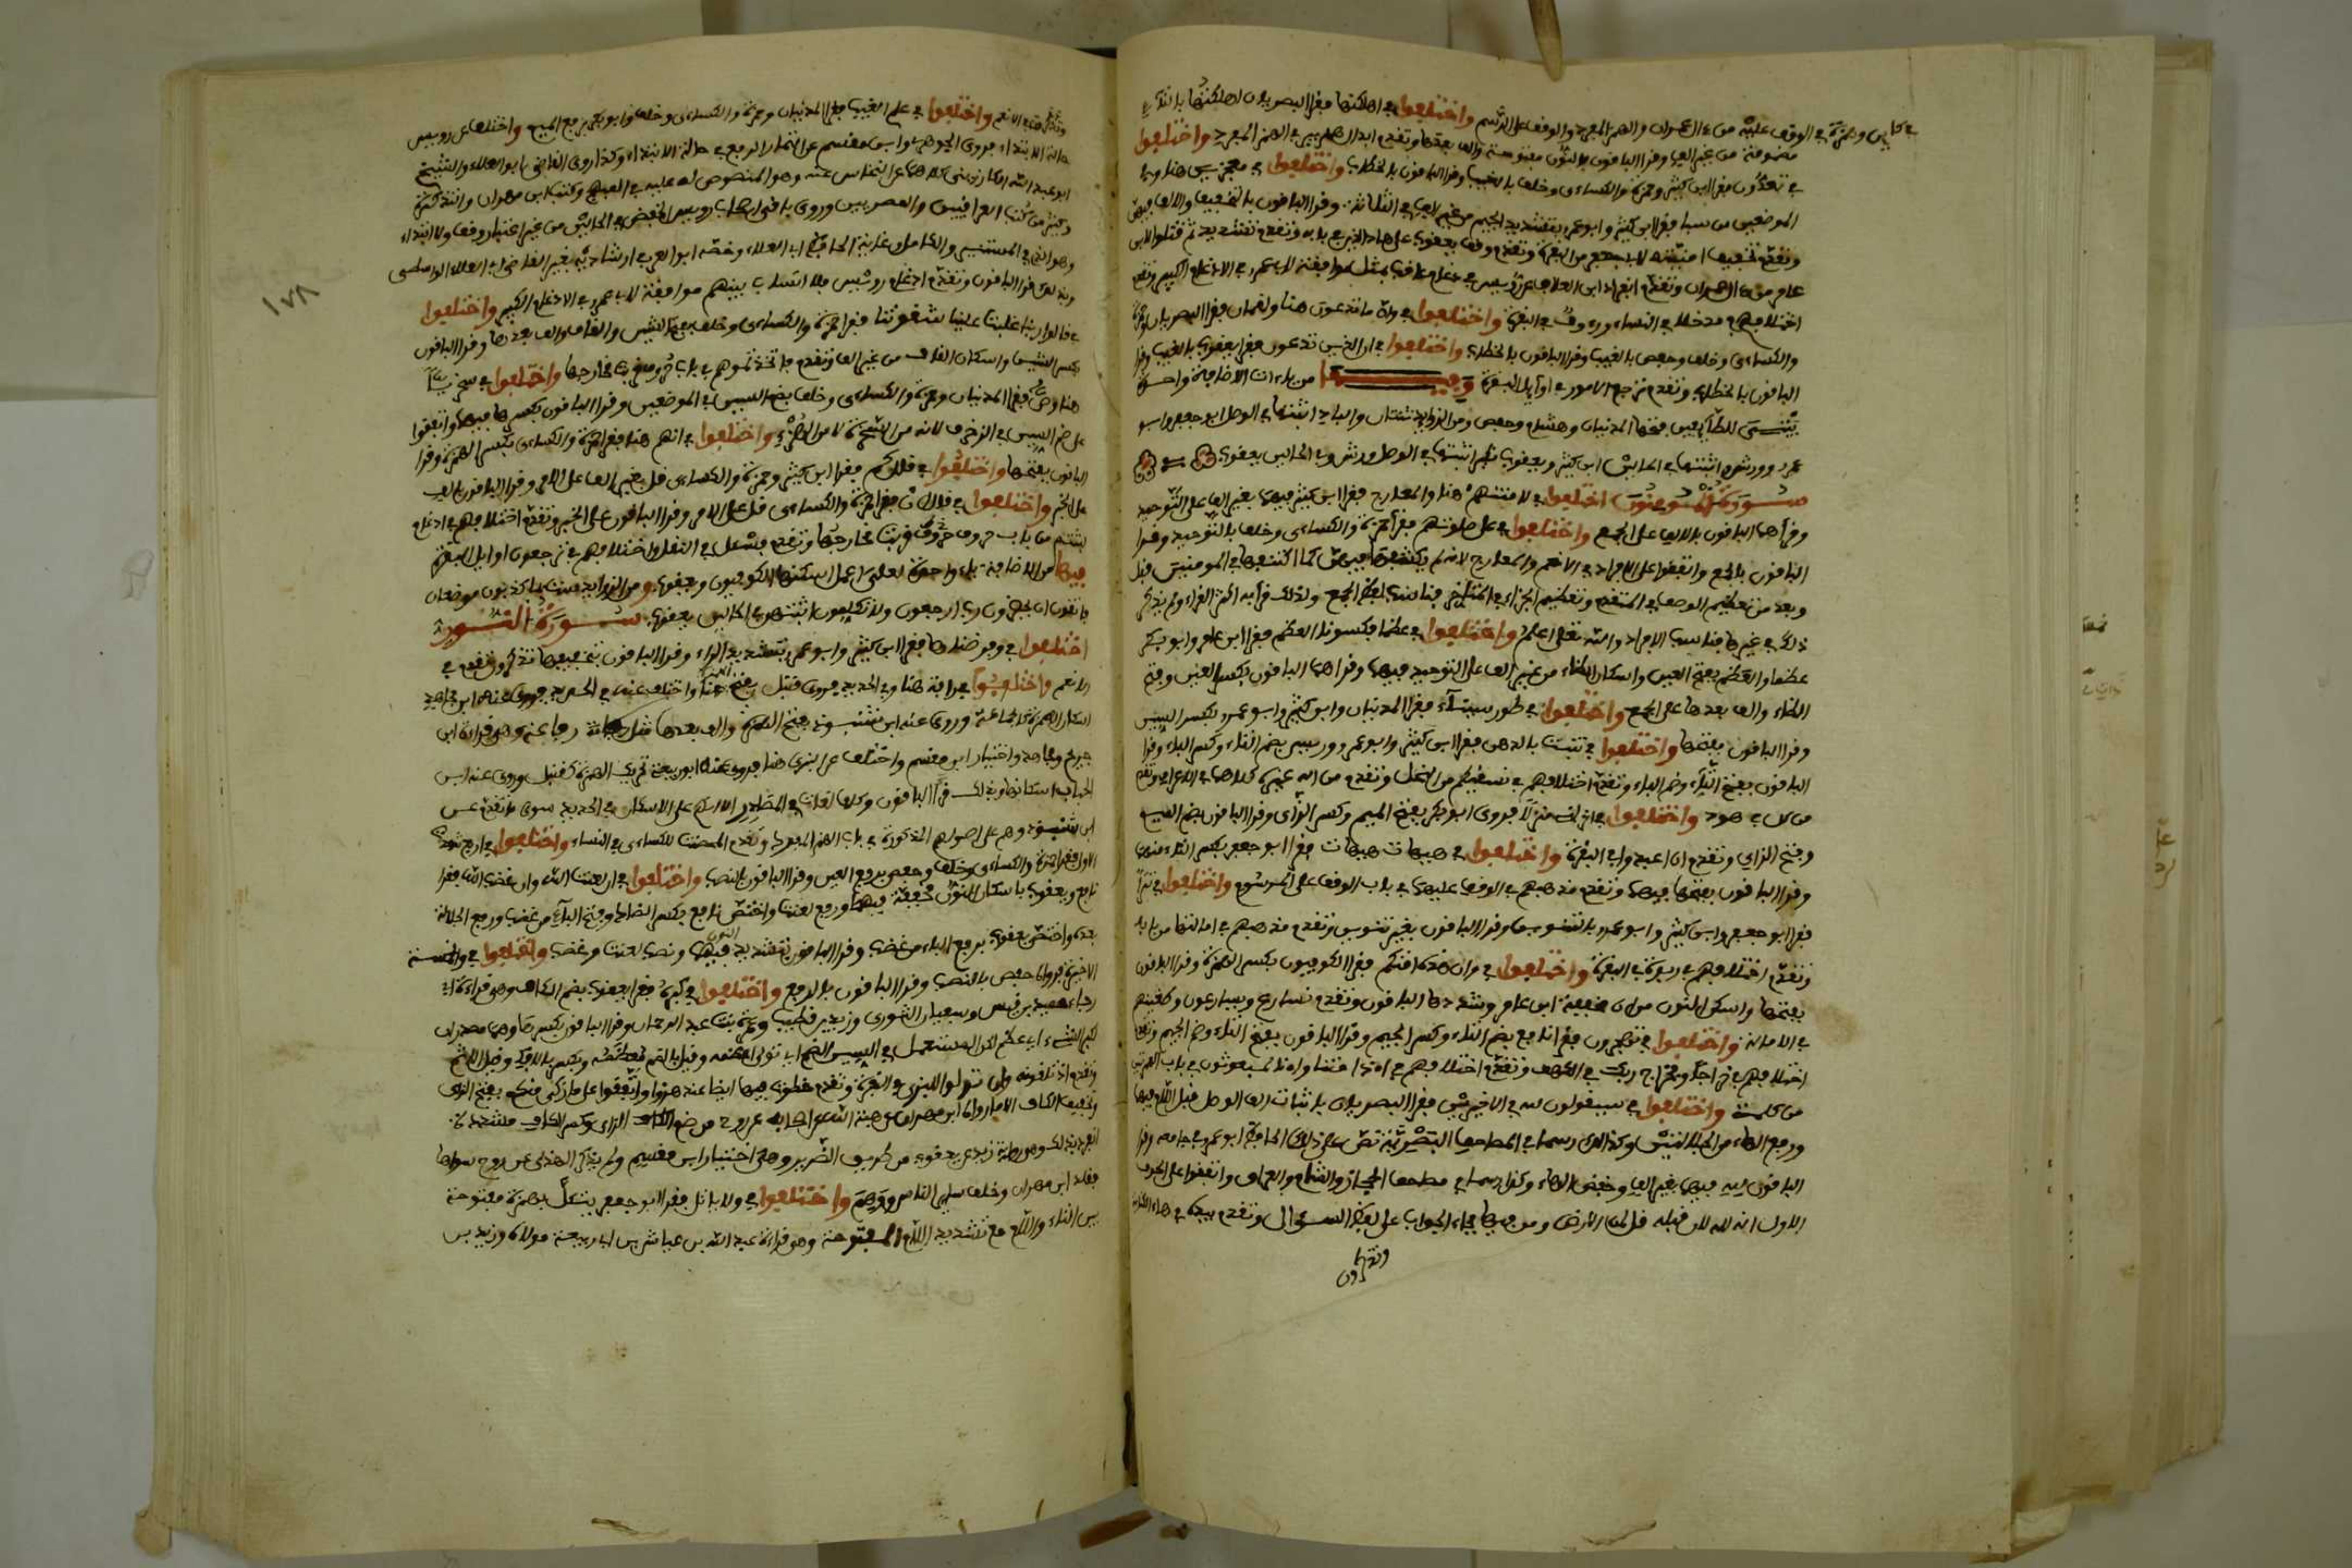 في كأين وهمزة في الوقف عليه من ءال عمران والهمز المفرد والوقف على الرسم واختلفوا في اهلكتها فقرا البصريان اهلكتها بالتاء
مضمومة من غير الف وقرا الباقون بالنون مفتوحة والف بعدها وتقدم ابدال همز بير في الهمز المفرد واختلفوا
في تعدون فقرا ابن كثير وحمزة والكساءى وخلف بالغيب وقرا الباقون بالخطاب واختلفوا في معجزين هنا وفي
الموضعين من سبا فقرا ابن كثير وابو عمرو بتشديد الجيم من غير الف في الثلاثة وقرا الباقون بالتخفيف والالف فيهن
وتقدم تخفيف امنيته لابي جعفر من البقرة وتقدم وقف يعقوب على هاد الذين في بابه وتقدم تشديد ثم قتلوا لابن
عامر من ءال عمران وتقدم انفراد ابن العلاف عن رويس في ادغام عاقب بمثل موافقة لابي عمرو في الادغام الكبير وتقدم
اختلافهم في مدخلا في النساء ورءوف في البقرة واختلفوا في وان ما تدعون هنا ولقمان فقرا البصريان وحمزة
والكساءى وخلف وحفص بالغيب وقرا الباقون بالخطاب واختلفوا في ان الذين تدعون فقرا يعقوب بالغيب وقرا
الباقون بالخطاب وتقدم ترجع الامور في اوايل البقرة وفيها من ياءات الاضافة واحدة
بيتي للطايفين فتحها المدنيان وهشام وحفص ومن الزوايد ثنتان والباد اثبتها في الوصل ابو جعفر وابو
عمرو وورش واثبتها في الحالين ابن كثير ويعقوب نكير اثبتها في الوصل ورش وفي الحالين يعقوب
سورة المومنون اختلفوا في لاماناتهم هنا والمعارج فقرا ابن كثير فيهما بغير الف على التوحيد
وقراهما الباقون بالالف على الجمع واختلفوا في على صلوتهم فقرا حمزة والكساءى وخلف بالتوحيد وقرا
الباقون بالجمع واتفقوا على الافراد في الانعم والمعارج لانه لم يكتنفها فيهن كما اكتنفها في المومنين قبل
وبعد من تعظيم الوصف في المتقدم وتعظيم الجزاء في المتاخر فناسب لفظ الجمع ولذلك قرا به اكثر القراء ولم يكن
ذلك في غيرها فناسب الافراد والله تعلى اعلم واختلفوا في عظما فكسونا العظم فقرا ابن عامر وابو بكر
عظما والعظم بفتح العين واسكان الظاء من غير الف على التوحيد فيهما وقراهما الباقون بكسر العين وفتح
الظاء والف بعدها على الجمع واختلفوا في طور سيناء فقرا المدنيان وابن كثير وابو عمرو بكسر السين
وقرا الباقون بفتحها واختلفوا في تنبت بالدهن فقرا ابن كثير وابو عمرو ورويس بضم التاء وكسر الباء وقرا
الباقون بفتح التاء وضم الباء وتقدم اختلافهم في نسقيكم من النحل وتقدم من اله غيره كلاهما في الاعراف وتقدم
من كل في هود واختلفوا في انزلني منزلا فروى ابو بكر بفتح الميم وكسر الزاى وقرا الباقون بضم الميم
وفتح الزاي وتقدم ان اعبدوا في البقرة واختلفوا في هيهات هيهات فقرا ابو جعفر بكسر التاء منهما
وقرا الباقون بفتحها فيهما وتقدم مذهبهم في الوقف عليهما في باب الوقف على المرسوم واختلفوا في تترا
فقرا ابو جعفر وابن كثير وابو عمرو بالتنوين وقرا الباقون بغير تنوين وتقدم مذهبهم في امالتها من بابه
وتقدم اختلافهم في ربوة في البقرة واختلفوا في وان هذه امتكم فقرا الكوفيون بكسر الهمزة وقرا الباقون
بفتحها واسكن النون من ان خفيفة ابن عامر وشددها الباقون وتقدم نسارع ويسارعون وطغينهم
في الامالة واختلفوا في تهجرون فقرا نافع بضم التاء وكسر الجيم وقرا الباقون بفتح التاء وضم الجيم وتقدم
اختلافهم في خراجا وفخراج ربك في الكهف وتقدم اختلافهم في اءذا متنا واءنا لمبعوثون في باب الهمزتين
من كلمة واختلفوا في سيقولون لله في الاخيرتين فقرا البصريان باثبات الف الوصل قبل اللام فيهما
ورفع الهاء من الجلالتين وكذلك رسما في المصاحف البصرية نص على ذلك الحافظ ابو عمرو في جامعه وقرا
الباقون لله فيهما بغير الف وخفض الهاء وكذا رسما في مصاحف الحجاز والشام والعراق واتفقوا على الحرف
الاول انه لله لان قبله قل لمن الارض ومن فيها فجاء الجواب على لفظ السؤال وتقدم بيده في هاء الكناية
وتذكرون
وتذكرون في الانعم واختلفوا في علم الغيب فقرا المدنيان وحمزة والكساءى وخلف وابو بكر برفع الميم واختلف عن رويس
حالة الابتداء فروى الجوهرى وابن مقسم عن التمار الرفع في حالة الابتداء وكذا روى القاضي ابو العلاء والشيخ
ابو عبد الله الكارزيني كلاهما عن النخاس عنه وهو المنصوص له عليه في المبهج وكتب ابن مهران والتذكرة
وكثير من كتب العراقيين والمصريين وروى باقي اصحاب رويس الخفض في الحالين من غير اعتبار وقف ولا ابتداء
وهو الذي في المستنير والكامل وغاية الحافظ ابي العلاء وخصه ابو العز في ارشاديه بغير القاضي ابي العلاء الواسطى
وبذلك قرا الباقون وتقدم ادغام رويس فلا انساب بينهم موافقة لابي عمرو في الادغام الكبير واختلفوا
في قالوا ربنا غلبت علينا شقوتنا فقرا حمزة والكساءى وخلف بفتح الشين والقاف والف بعدها وقرا الباقون
بكسر الشين واسكان القاف من غير الف وتقدم فاتخذتموهم في باب حروف قربت مخارجها واختلفوا في سخريا
هنا وص فقرا المدنيان وحمزة والكساءى وخلف بضم السين في الموضعين وقرا الباقون بكسرها فيهما واتفقوا
على ضم السين في الزخرف لانه من السخرة لا من الهزء واختلفوا في انهم هم فقرا حمزة والكساءى بكسر الهمزة وقرا
الباقون بفتحها واختلفوا في قل كم فقرا ابن كثير وحمزة والكساءى قل بغير الف على الامر وقرا الباقون بالف
على الخبر واختلفوا في قل ان فقرا حمزة والكساءى قل على الامر وقرا الباقون على الخبر وتقدم اختلافهم في ادغام
لبثتم من باب حروف قربت مخارجها وتقدم فسئل في النقل واختلافهم في ترجعون اوايل البقرة
فيها من الاضافة ياء واحدة لعلي اعمل اسكنها الكوفيون ويعقوب ومن الزوايد ست بما كذبون موضعان
فاتقون ان يحضرون رب ارجعون ولا تكلمون اثبتهن في الحالين يعقوب سورة النور
اختلفوا في وفرضناها فقرا ابن كثير وابو عمرو بتشديد الراء وقرا الباقون بتخفيفها وتقدم تذكرون في
الانعم واختلفوا في رافة هنا وفي الحديد فروى قنبل بفتح الهمزة هنا واختلف عنه في الحديد فروى عنه ابن مجاهد
اسكان الهمزة كالجماعة وروى عنه ابن شنبوذ بفتح الهمزة والف بعدها مثل رعافة وهي قراءة ابن
جريج ومجاهد واختيار ابن مقسم واختلف عن البزى هنا فروى عنه ابو ربيعة تحريك الهمزة كقنبل وروى عنه ابن
الحباب اسكانها وبذلك قرا الباقون وكلها لغات في المصادر الا انه اجمع على الاسكان في الحديد سوى ما تقدم عن
ابن شنبوذ وهم على اصولهم المذكورة في باب الهمز المفرد وتقدم المحصنت للكساءى في النساء واختلفوا في اربع شهدت
الاول فقرا حمزة والكساءى وخلف وحفص برفع العين وقرا الباقون بالنصب واختلفوا في ان لعنت الله وان غضب الله فقرا
نافع ويعقوب باسكان النون مخففة فيهما ورفع لعنت واختص نافع بكسر الضاد وفتح الباء من غضب ورفع الجلالة
بعده واختص يعقوب برفع الباء من غضب وقرا الباقون بتشديد النون فيهما ونصب لعنت وغضب واختلفوا في والخامسة
الاخيرة فرواه حفص بالنصب وقرا الباقون بالرفع واختلفوا في كبره فقرا يعقوب بضم الكاف وهي قراءة ابي
رجاء وحميد بن قيس وسفيان الثورى ويزيد بن قطيب وعمرة بنت عبد الرحمان وقرا الباقون بكسرها وهما مصدران
لكبر الشيء اي عظم لكن المستعمل في السن الضم اي تولى اعظمه وقيل بالضم معظمه وبكسر البداءة وقيل الاثم
وتقدم اذ تلقونه وان تولوا للبزي في البقرة وتقدم خطوت فيها ايضا عند هزوا واتفقوا على ما زكى منكم بفتح الزاى
وتخفيف الكاف الا ما رواه ابن مهران عن هبة الله عن اصحابه عن روح من ضم الزاى وكسر الكاف مشددة
انفرد بذلك وهي رواية زيد عن يعقوب من طريق الضرير وهي اختيار ابن مقسم ولم يذكر الهذلى عن روح سواها
فقلد ابن مهران وخلف ساير الناس ووهم واختلفوا في ولا ياتل فقرا ابو جعفر يتال بهمزة مفتوحة
بين التاء واللام مع تشديد اللام المفتوحة وهي قراءة عبد الله بن عياش بن ابي ربيعة مولاه وزيد بن
١٧٨